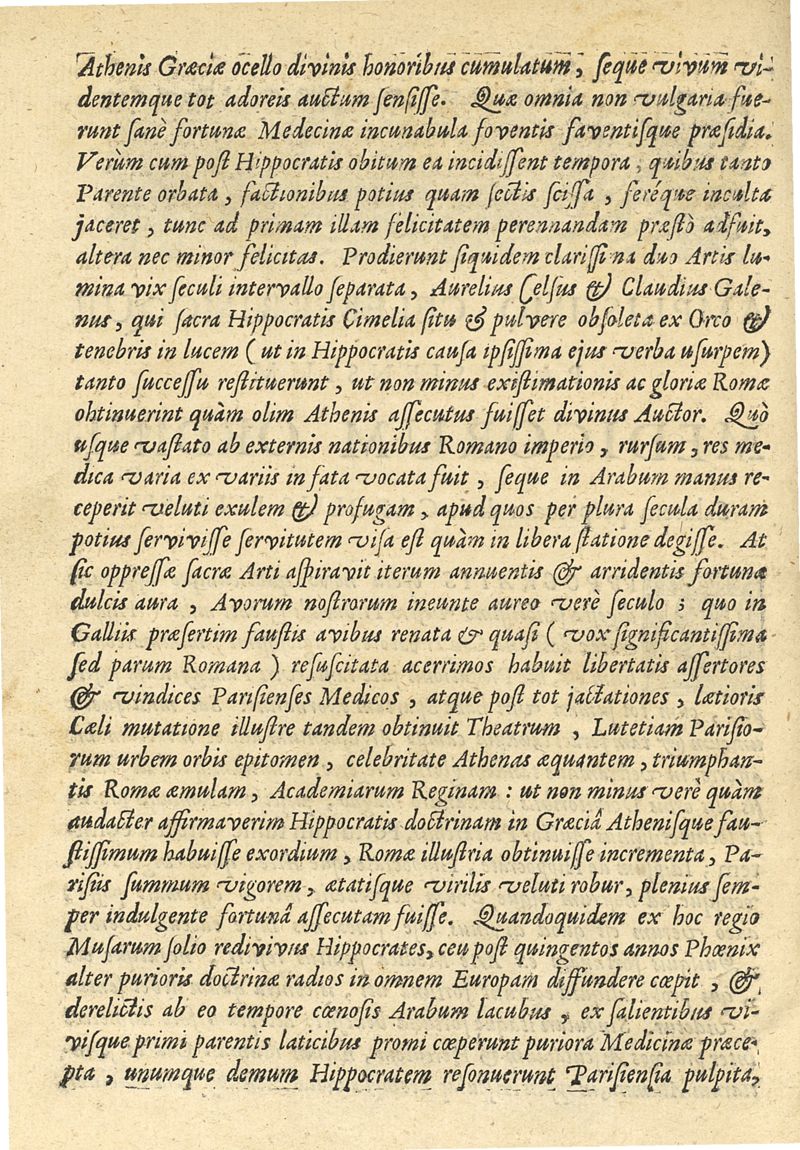 Athenis Græciæ ocello divinis honoribus cumulatum, ſeque vivum vi-
dentemque tot adoreis auctum ſenſiſſe. Quæ omnia non vulgaria fue-
runt ſanè fortunæ Medecinæ incunabula foventis faventiſque præſidia.
Verùm cum poſt Hippocratis obitum ea incidiſſent tempora, quibus tanto
Parente orbata, factionibus potius quam ſectis ſciſſa, feréque inculta
jaceret, tunc ad primam illam felicitatem perennandam præſtò adfuit,
altera nec minor felicitas. Prodierunt ſiquidem clariſſima duo Artis lu-
mina vix ſeculi intervallo ſeparata, Aurelius Celſus & Claudius Gale-
nus, qui ſacra Hippocratis Cimelia ſitu & pulvere obſoleta ex Orco &
tenebris in lucem (ut in Hippocratis cauſa ipſiſſima ejus verba uſurpem)
tanto ſucceſſu reſtituerunt, ut non minus exiſtimationis ac gloriæ Romæ
obtinuerint quàm olim Athenis aſſecutus fuiſſet divinus Auctor. Quò
uſque vaſtato ab externis nationibus Romano imperio, rurſum, res me-
dica varia ex variis in fata vocata fuit, ſeque in Arabum manus re-
ceperit veluti exulem & profugam, apud quos per plura ſecula duram
potius ſerviviſſe ſervitutem viſa eſt quàm in libera ſtatione degiſſe. At
ſic oppreſſæ ſacræ Arti aſpiravit iterum annuentis & arridentis fortunæ
dulcis aura, Avorum noſtrorum ineunte aureo verè ſeculo; quo in
Galliis præſertim fauſtis avibus renata & quaſi (vox ſignificantiſſima
ſed parum Romana) reſuſcitata acerrimos habuit libertatis aſſertores
& vindices Pariſienſes Medicos, atque poſt tot jactationes, lætioris
Cæli mutatione illuſtre tandem obtinuit Theatrum, Lutetiam Pariſio-
rum urbem orbis epitomen, celebritate Athenas æquantem, triumphan-
tis Romæ æmulam, Academiarum Reginam: ut non minus verè quàm
audacter affirmaverim Hippocratis doctrinam in Græciâ Atheniſque fau-
ſtiſſimum habuiſſe exordium, Romæ illuſtria obtinuiſſe incrementa, Pa-
riſiis ſummum vigorem, ætatiſque virilis veluti robur, plenius ſem-
per indulgente fortunâ aſſecutam fuiſſe. Quandoquidem ex hoc regio
Muſarum ſolio redivivus Hippocrates, ceu poſt quingentos annos Phœnix
alter purioris doctrinæ radios in omnem Europam diffundere cœpit, &
derelictis ab eo tempore cœnoſis Arabum lacubus, ex ſalientibus vi-
viſque primi parentis laticibus promi cœperunt puriora Medicinæ præce-
pta, unumque demum Hippocratem reſonuerunt Pariſienſia pulpita,